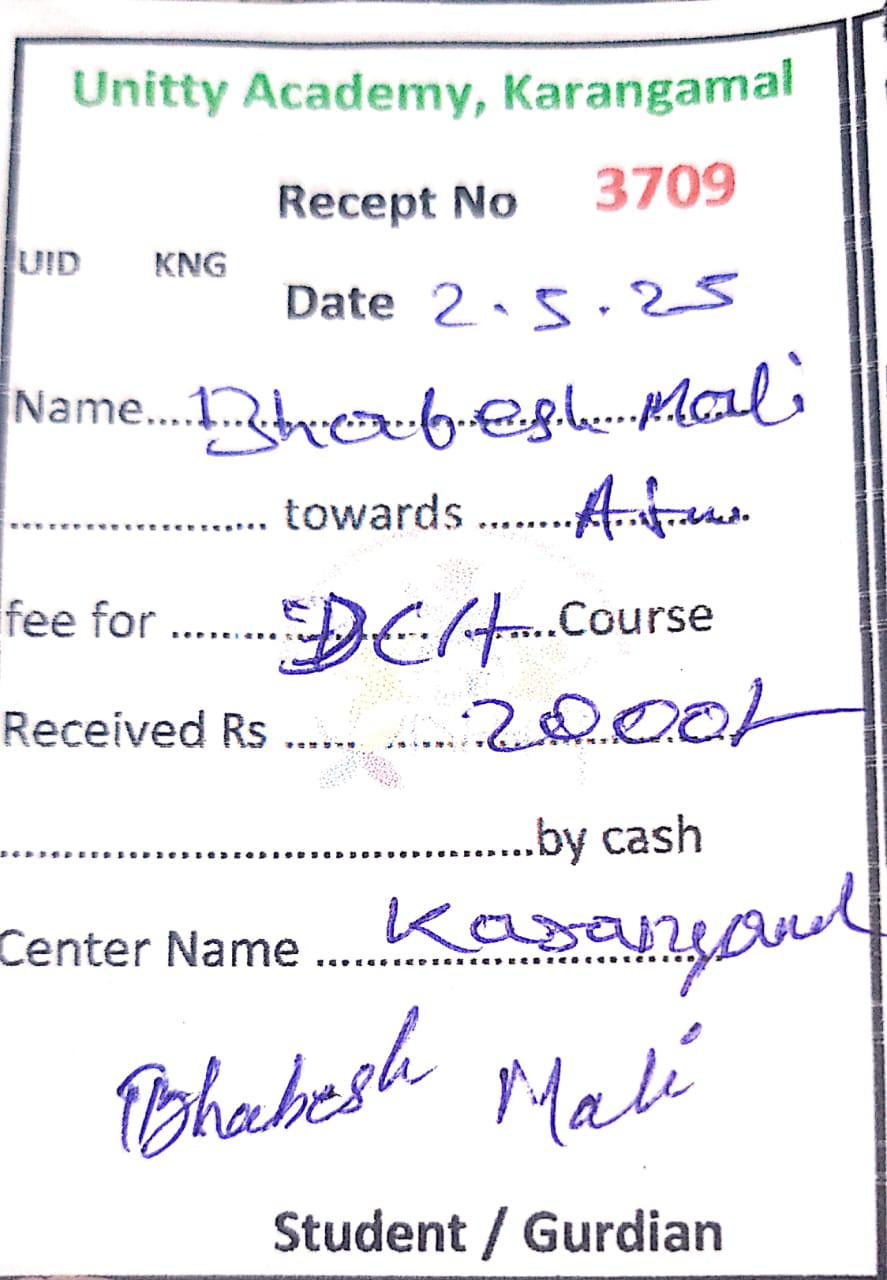 Unitty Academy, Karangamal
Recept No 3709
UID KNG
Date 2.5.25
Name....Bhabesh Mali
.................... towards ...............
fee for ............DCH....Course
Received Rs ......2000/-
........................................by cash
Center Name ........................
Bhabesh Mali
Student / Gurdian